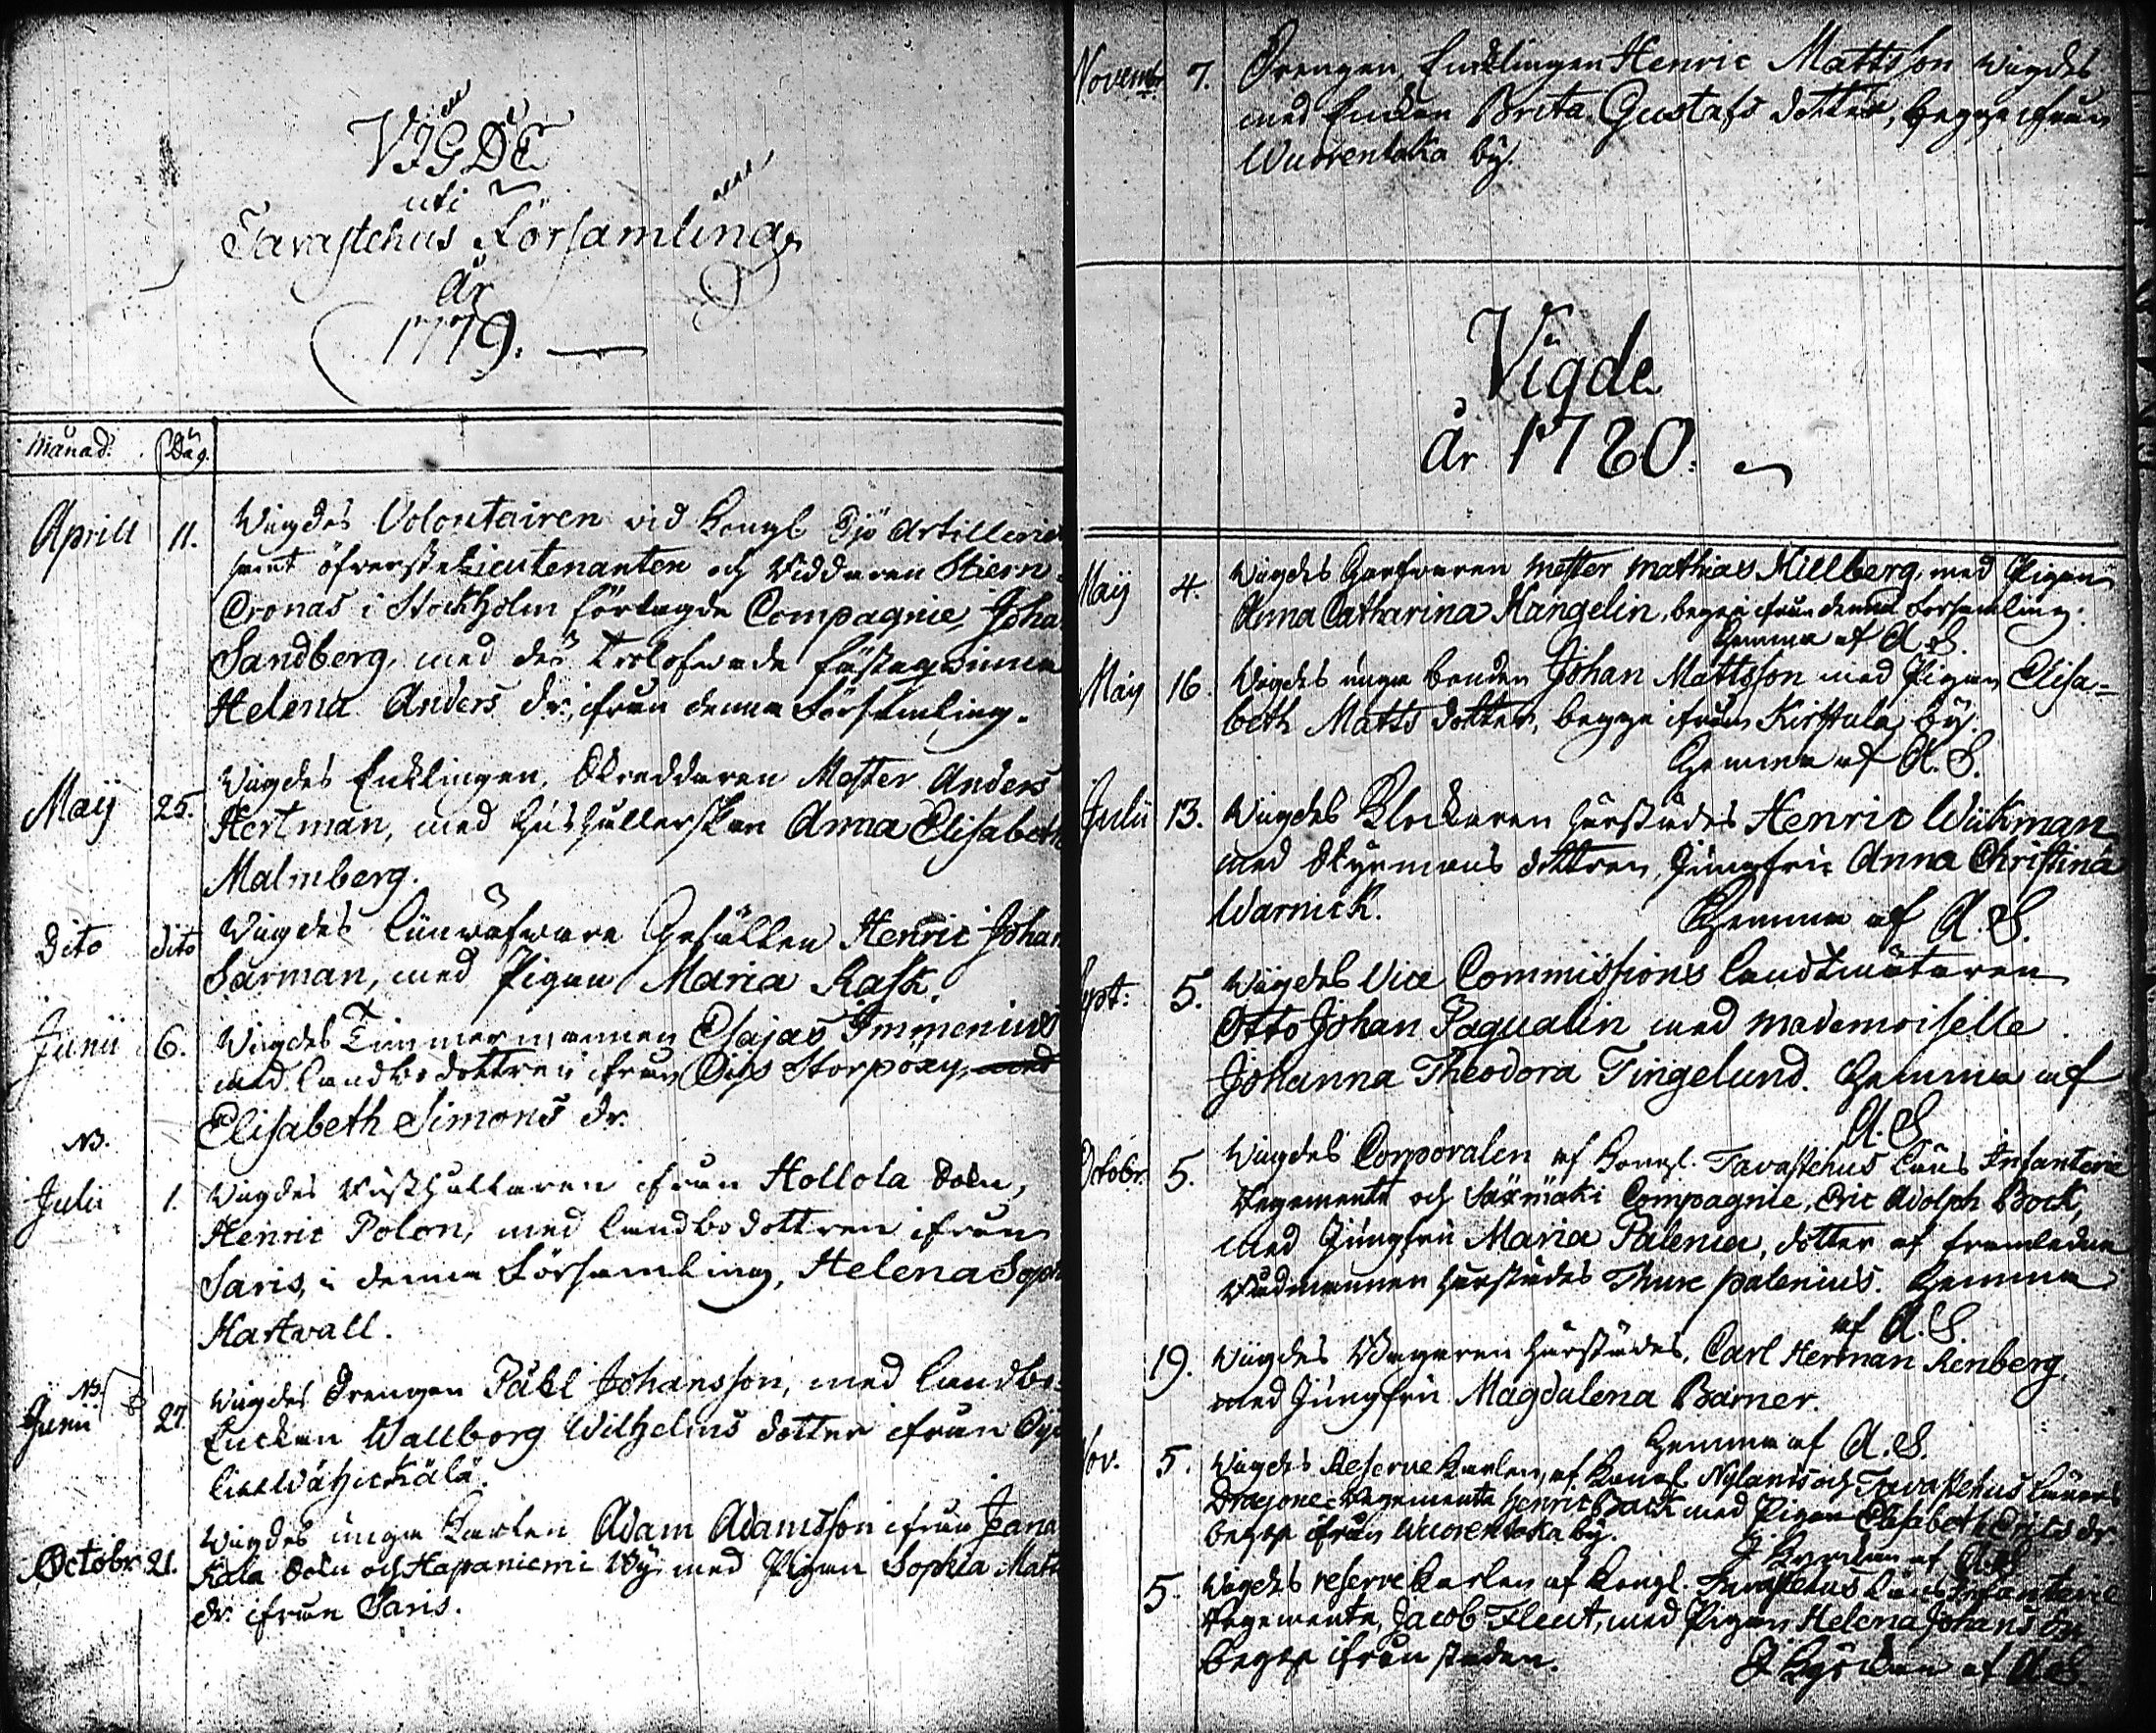 VIGDE
uti
Tavastehus Församling
År
1779.
Månad. Dag.
Aprill 11. Wigdes Volontairen vid Kongl Sjö Artilleriet
samt öfverste Lieutenanten och Riddaren Stiern-
Cronas i Stockholm förlagde Compagnie, Joha
Sandberg, med des Trolofwade fästeqwinna
Helena Anders dr, ifrån denna Församling.
Maij 25. Wigdes Enklingen, Skreddaren Mester Anders
Hertman, med Hushållerskan Anna Elisabeth
Malmberg.
Dito dito Wigdes Linwäfware Gesällen Henric Johan
Sarman, med Pigan Maria Rask.
Junii 6. Wigdes Timmermannen Esajas Immenius
med Landbodottren ifrån Öijs Storpoxy, med
Elisabeth Simons dr.
NB.
Julii 1. Wigdes Rusthållaren ifrån Hollola Sokn,
Henric Polon, med Landbodottren ifrån
Saris, i denna Församling, Helena Soph
Hartvall.
NB.
Junii 27. Wigdes Drengen Påhl Johansson, med Landbo-
Enckan Wallborg Wilhelms dotter ifrån Öij
Octobr. 21. Wigdes unga Karlen Adam Adamsson ifrån Jana
Kala Sokn och Hapaniemi By med Pigan Sophia Matts
dr. ifrån Saris.
Novembr. 7. Drengen, Encklingen Henric Mattsson Wigdes
med Enckan Brita Gustafs dotter, begge ifrån
Wuorentaka by.
Vigde
År 1780.
Maij 4. Wigdes Garfvaren Mester Mathias Hillberg, med Pigan
Anna Catharina Hangelin, begge ifrån denna Församling.
Hemma af A. S.
Maij 16. Wigdes unga bonden Johan Mattsson med Pigan Elisa-
beth Matts dotter, begge ifrån Kirstula by.
Hemma af A. S.
Julii 13. Wigdes Klockaren härstädes Henric Wiikman
med Styrmans dottren, Jungfru Anna Christina
Warnick. Hemma af A. S.
ept: 5. Wigdes Vice Commissions Landtmätaren
Otto Johan Paqualin med Mademoiselle
Johanna Theodora Tingelund. Hemma af
A. S.
Octobr. 5. Wigdes Corporalen af Kongl. Tavastehus Läns Infanterie
Regemente och Säxmäki Compagnie, Eric Adolph Bock,
med Jungfru Maria Palenia, dotter af framledne
Rådmannen härstädes Thure Palenius. Hemma
af A. S.
19. Wigdes Bagaren härstädes, Carl Herman Renberg,
med Jungfru Magdalena Barner.
Hemma af A. S.
Nov. 5. Wigdes Reserve Karlen, af Kongl Nylands och Tavastehus Läners
Dragone-Regemente Henric Back med Pigan Elisabeth dr
begge ifrån Wuorentaka by.
I Kyrkan af A. S.
5. Wigdes reserve Karlen af Kongl. Tavastehus Läns Infanterie
Regemente, Jacob Fleut, med Pigan Helena Johans dr
begge ifrån staden. I Kyrckan af A. S.